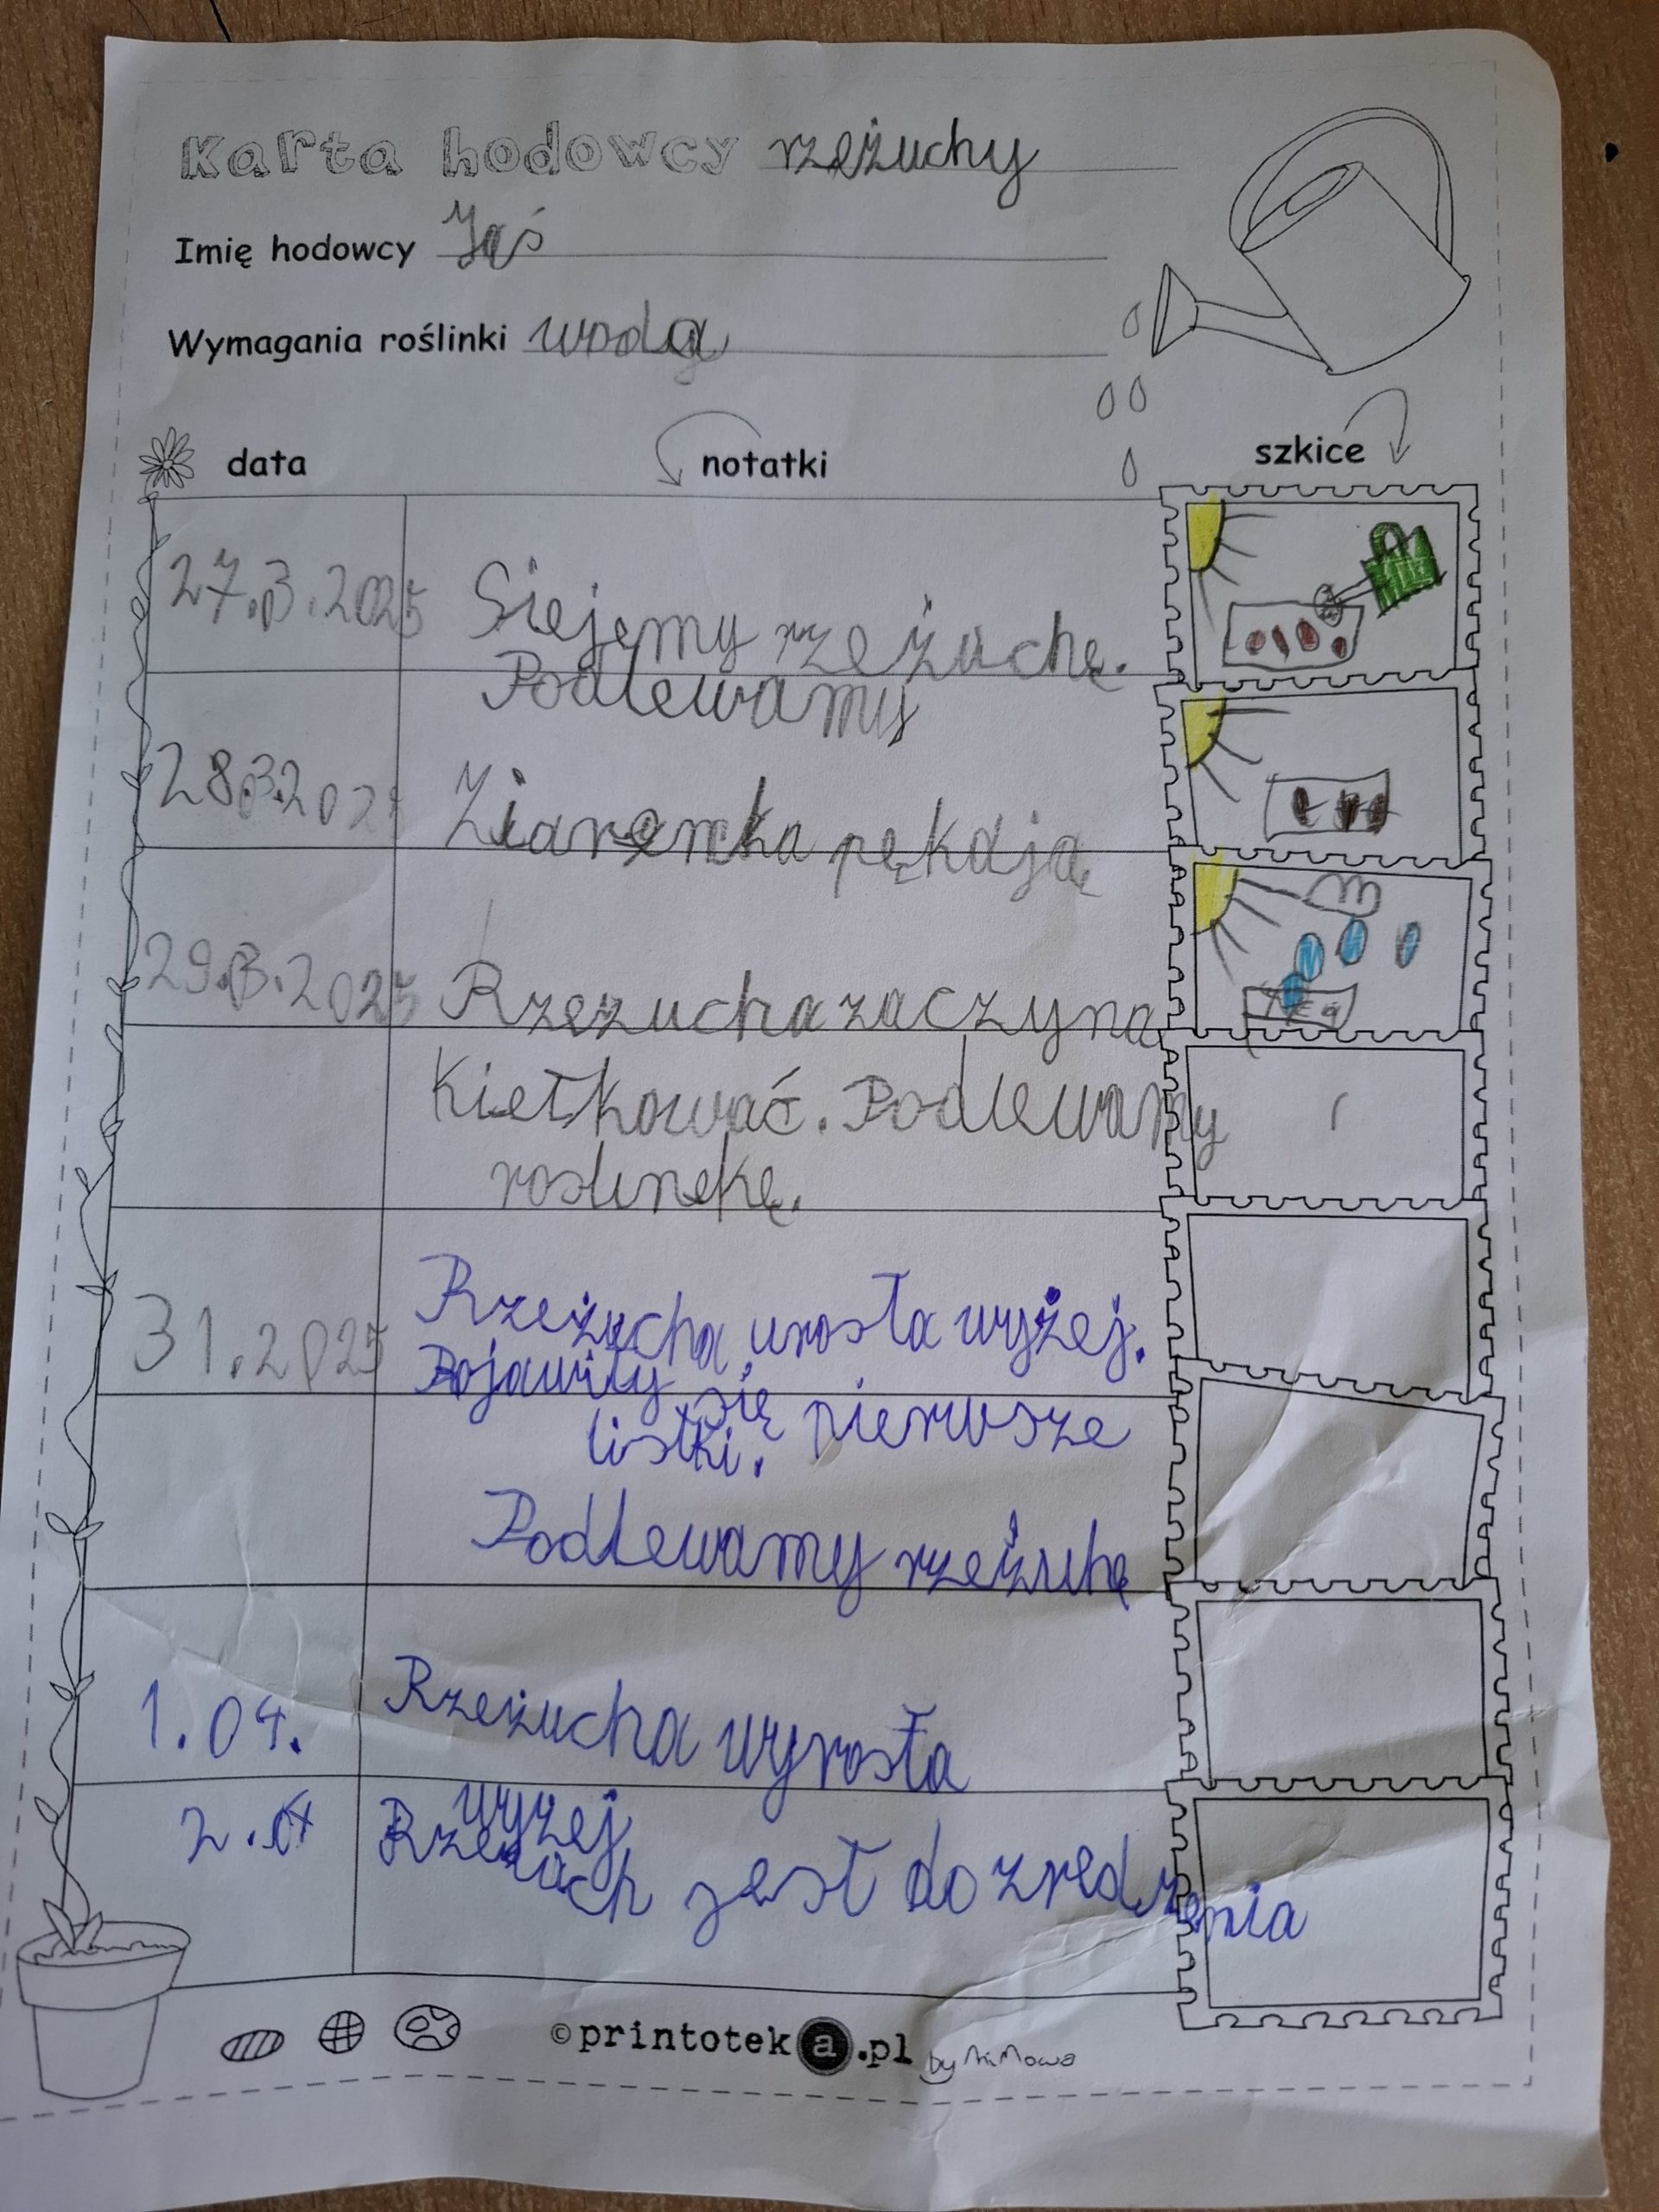 Karta hodowcy rzeżuchy
Imię hodowcy Jaś
Wymagania roślinki woda
data notatki szkice
27.3.2025 Siejemy rzeżuchę.
Podlewamy
28.3.2025 Ziarenka pękają
29.3.2025 Rzezucha zaczyna
Kiełkować. Podlewamy
roslinekę.
31.2025 Rzeżucha urosła wyżej.
Pojawiły się pierwsze
listki.
Podlewamy rzeżuchę
1.04. Rzeżucha wyrosła
wyżej
2.04 Rzeżuch jest do zredzenia
©printoteka.pl
by MiMowa